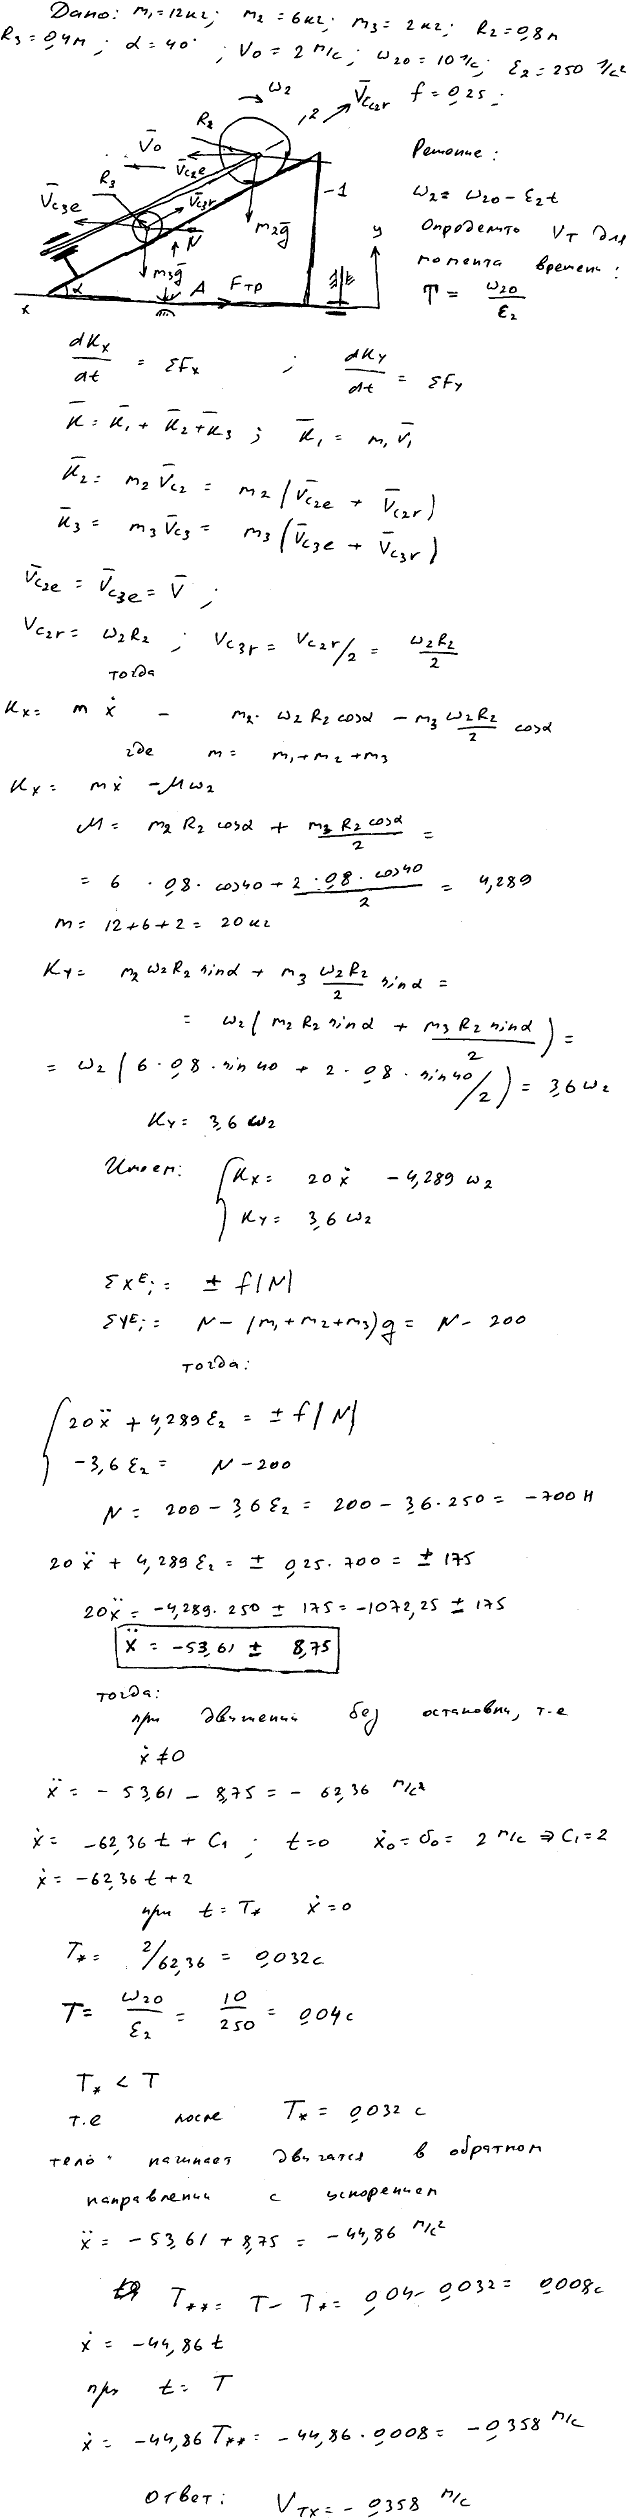 Дано: m₁=12кг; m₂=6кг; m₃=2кг; R₂=0,8м
R₃=0,4м; α=40°; V₀=2 м/с; ω₂₀=10 1/с; ε₂=250 1/с²
f=0,25;
ω₂
V̄c₂r
,2
R₂
V̄₀
V̄c₂e
R₃
V̄c₃e
V̄c₃r
N̄
m₂ḡ
m₃ḡ
-1
y
α
A
Fтр
x
Решение:
ω₂= ω₂₀-ε₂t
Определить V_T для
момента времени:
T = ω₂₀/ε₂
dKx/dt = ΣFx ; dKy/dt = ΣFy
K̄=K̄₁+K̄₂+K̄₃ ; K̄₁= m₁V̄₁
K̄₂= m₂V̄c₂ = m₂(V̄c₂e + V̄c₂r)
K̄₃= m₃V̄c₃= m₃(V̄c₃e + V̄c₃r)
V̄c₂e = V̄c₃e= V̄ ;
Vc₂r= ω₂R₂ ; Vc₃r= Vc₂r/2 = ω₂R₂/2
тогда
Kx= mẋ - m₂·ω₂R₂cosα - m₃ ω₂R₂/2 cosα
где m= m₁+m₂+m₃
Kx= mẋ -Mω₂
M= m₂R₂cosα + m₃R₂cosα/2 =
= 6·0,8·cos40+2·0,8·cos40/2 = 4,289
m= 12+6+2= 20кг
Ky= m₂ω₂R₂sinα + m₃ ω₂R₂/2 sinα =
= ω₂(m₂R₂sinα + m₃R₂sinα/2) =
= ω₂(6·0,8·sin40 + 2·0,8·sin40/2) = 3,6ω₂
Ky= 3,6ω₂
Имеем: { Kx= 20ẋ -4,289ω₂
Ky= 3,6ω₂
ΣXᴱᵢ= ± f|N|
ΣYᴱᵢ= N-(m₁+m₂+m₃)g= N-200
тогда:
{ 20ẍ+4,289ε₂= ±f|N|
-3,6ε₂= N-200
N= 200-3,6ε₂= 200-3,6·250= -700Н
20ẍ+4,289ε₂= ± 0,25·700= ±175
20ẍ= -4,289·250 ± 175=-1072,25 ± 175
ẍ= -53,61 ± 8,75
тогда:
при движении без остановки, т.е
ẋ≠0
ẍ= -53,61-8,75= -62,36 м/с²
ẋ= -62,36t+C₁; t=0 ẋ₀=v₀= 2 м/с ⇒C₁=2
ẋ= -62,36t+2
при t=T* ẋ=0
T*= 2/62,36= 0,032с
T= ω₂₀/ε₂ = 10/250 = 0,04с
T* < T
т.е после T*= 0,032 с
тело начинает двигатся в обратном
направлении с ускорением
ẍ= -53,61+8,75= -44,86 м/с²
T**= T-T*= 0,04-0,032= 0,008с
ẋ= -44,86t
при t= T
ẋ= -44,86T**= -44,86·0,008= -0,358 м/с
Ответ: V_TX=-0,358 м/с